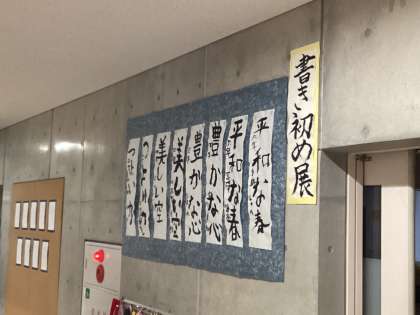 書き初め展
平和な春
平和な春
豊かな心
豊かな心
美しい空
美しい空